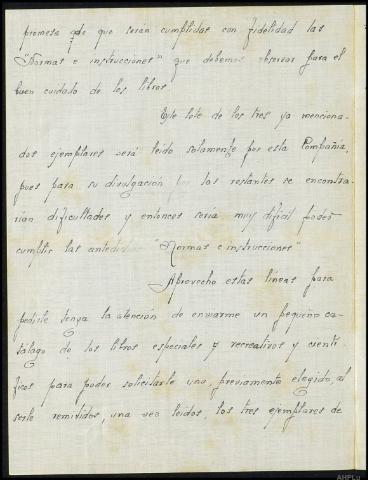 promesa de que serán cumplidas con fidelidad las
"Normas e instrucciones" que debemos observar para el
buen cuidado de los libros.
Este lote de los tres ya menciona-
dos ejemplares será leido solamente por esta Compañía,
pues para su divulgación por las restantes se encontra-
rían dificultades y entonces sería muy dificil poder
cumplir las antedichas "Normas e instrucciones"
Aprovecho estas líneas para
pedirle tenga la atención de enviarme un pequeño ca-
tálogo de los libros especiales y recreativos y cientí-
ficos para poder solicitarle uno, previamente elegido, al
serle remitidos, una vez leidos, los tres ejemplares de
AHPLu